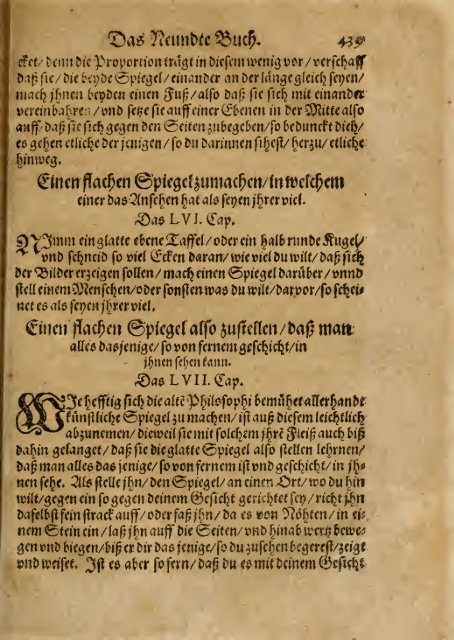 Das Neundte Buch. 439
cket/ denn die Proportion trägt in diesem wenig vor/ verschaff
daß sie/ die beyde Spiegel/ einander an der länge gleich seyen/
mach jhnen beyden einen Fuß/ also daß sie sich mit einander
vereinbahren/ vnd setze sie auff einer Ebenen in der Mitte also
auff/ daß sie sich gegen den Seiten zubegeben/ so bedunckt dich/
es gehen etliche der jenigen/ so du darinnen sihest/ herzu/ etliche
hinweg.
Einen flachen Spiegel zumachen/ in welchem
einer das Ansehen hat als seyen jhrer viel.
Das LVI. Cap.
NImm ein glatte ebene Taffel/ oder ein halb runde Kugel/
vnd schneid so viel Ecken daran/ wie viel du wilt/ daß sich
der Bilder erzeigen sollen/ mach einen Spiegel darüber/ vnnd
stell einem Menschen/ oder sonsten was du wilt/ darvor/ so schei-
net es als seyen jhrer viel.
Einen flachen Spiegel also zustellen/ daß man
alles dasjenige/ so von fernem geschicht/ in
jhnen sehen kann.
Das LVII. Cap.
WJe hefftig sich die alte Philosophi bemühet allerhandt
künstliche Spiegel zu machen/ ist auß diesem leichtlich
abzunemen/ dieweil sie mit solchem jhrē Fleiß auch biß
dahin gelanget/ daß sie die glatte Spiegel also stellen lehrnen/
daß man alles das jenige/ so von fernem ist vnd geschicht/ in jh-
nen sehe. Als stelle jhn/ den Spiegel/ an einen Ort/ wo du hin
wilt/ gegen ein so gegen deinem Gesicht gerichtet sey/ richt jhn
daselbst fein strack auff/ oder faß jhn/ da es von Nöhten/ in ei-
nem Stein ein/ laß jhn auff die Seiten/ vnd hinabwertz bewe-
gen vnd biegen/ biß er dir das jenige/ so du zusehen begerest/ zeigt
vnd weiset. Ist es aber so fern/ daß du es mit deinem Gesicht